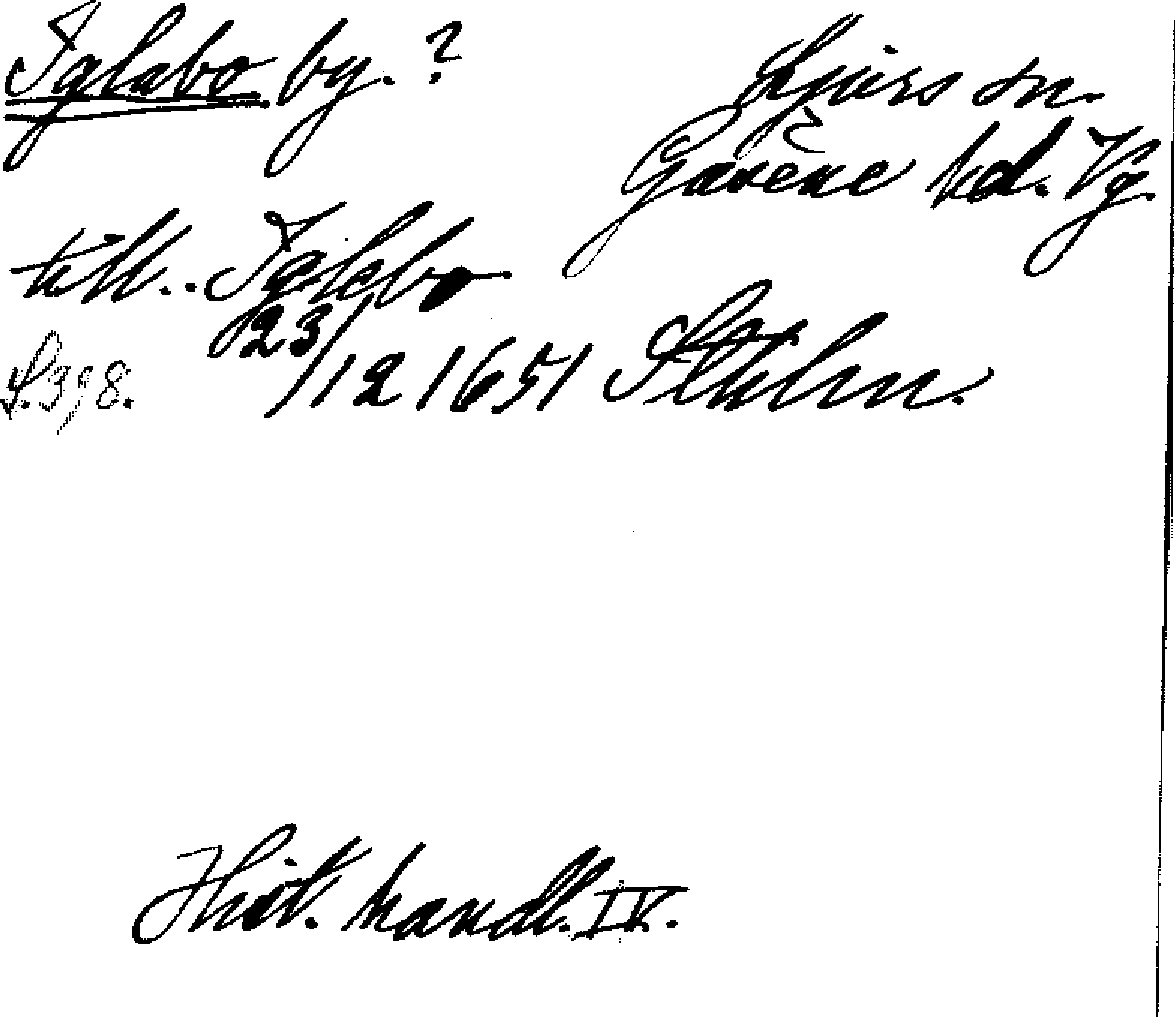 Iglabo by. ?
Ljurs sn.
Gäsene hd. Vg.
till.. Iglebo
23/12 1651 Sthlm.
S. 398.
Hist. handl. IV.